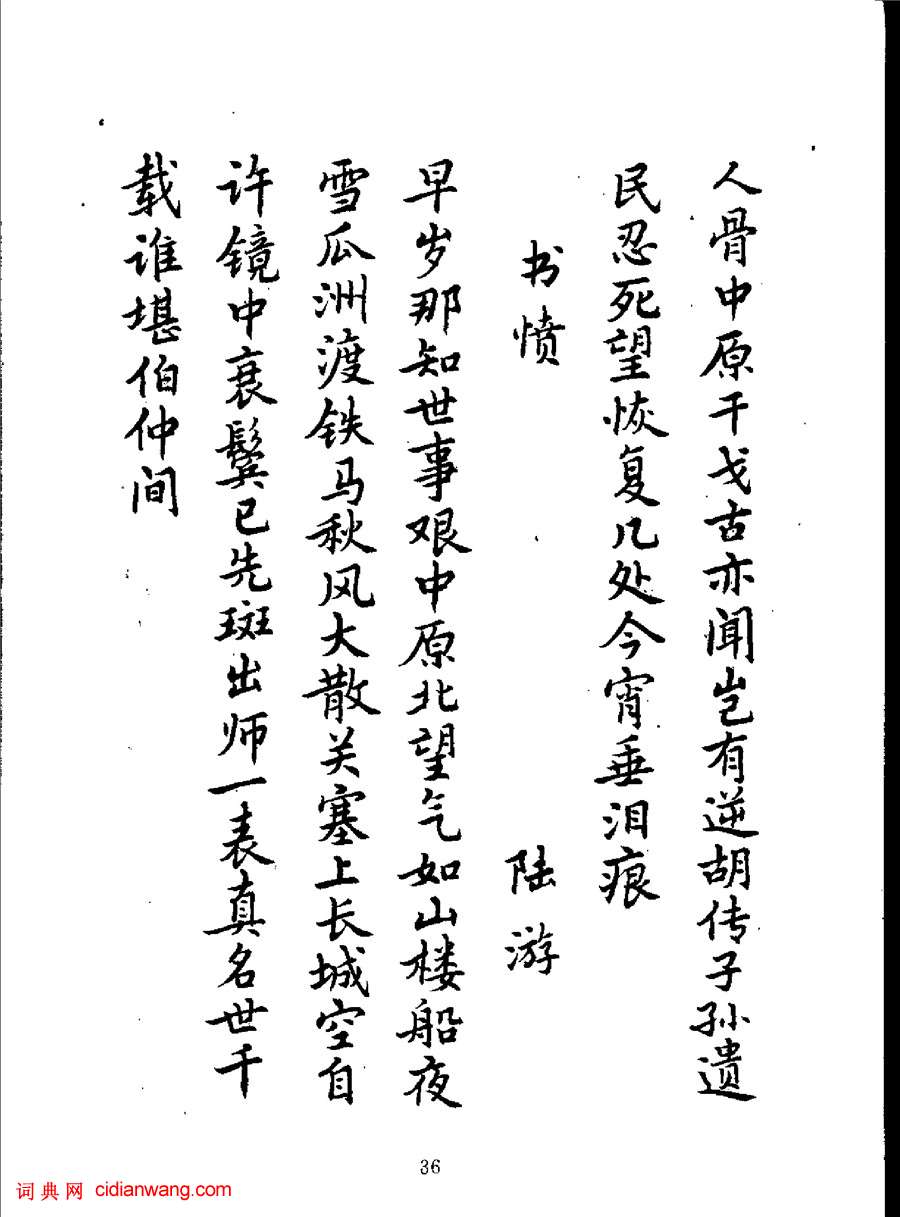 人骨中原干戈古亦闻岂有逆胡传子孙遗
民忍死望恢复几处今宵垂泪痕
书愤 陆游
早岁那知世事艰中原北望气如山楼船夜
雪瓜洲渡铁马秋风大散关塞上长城空自
许镜中衰鬓已先斑出师一表真名世千
载谁堪伯仲间
36
词典网 cidianwang.com